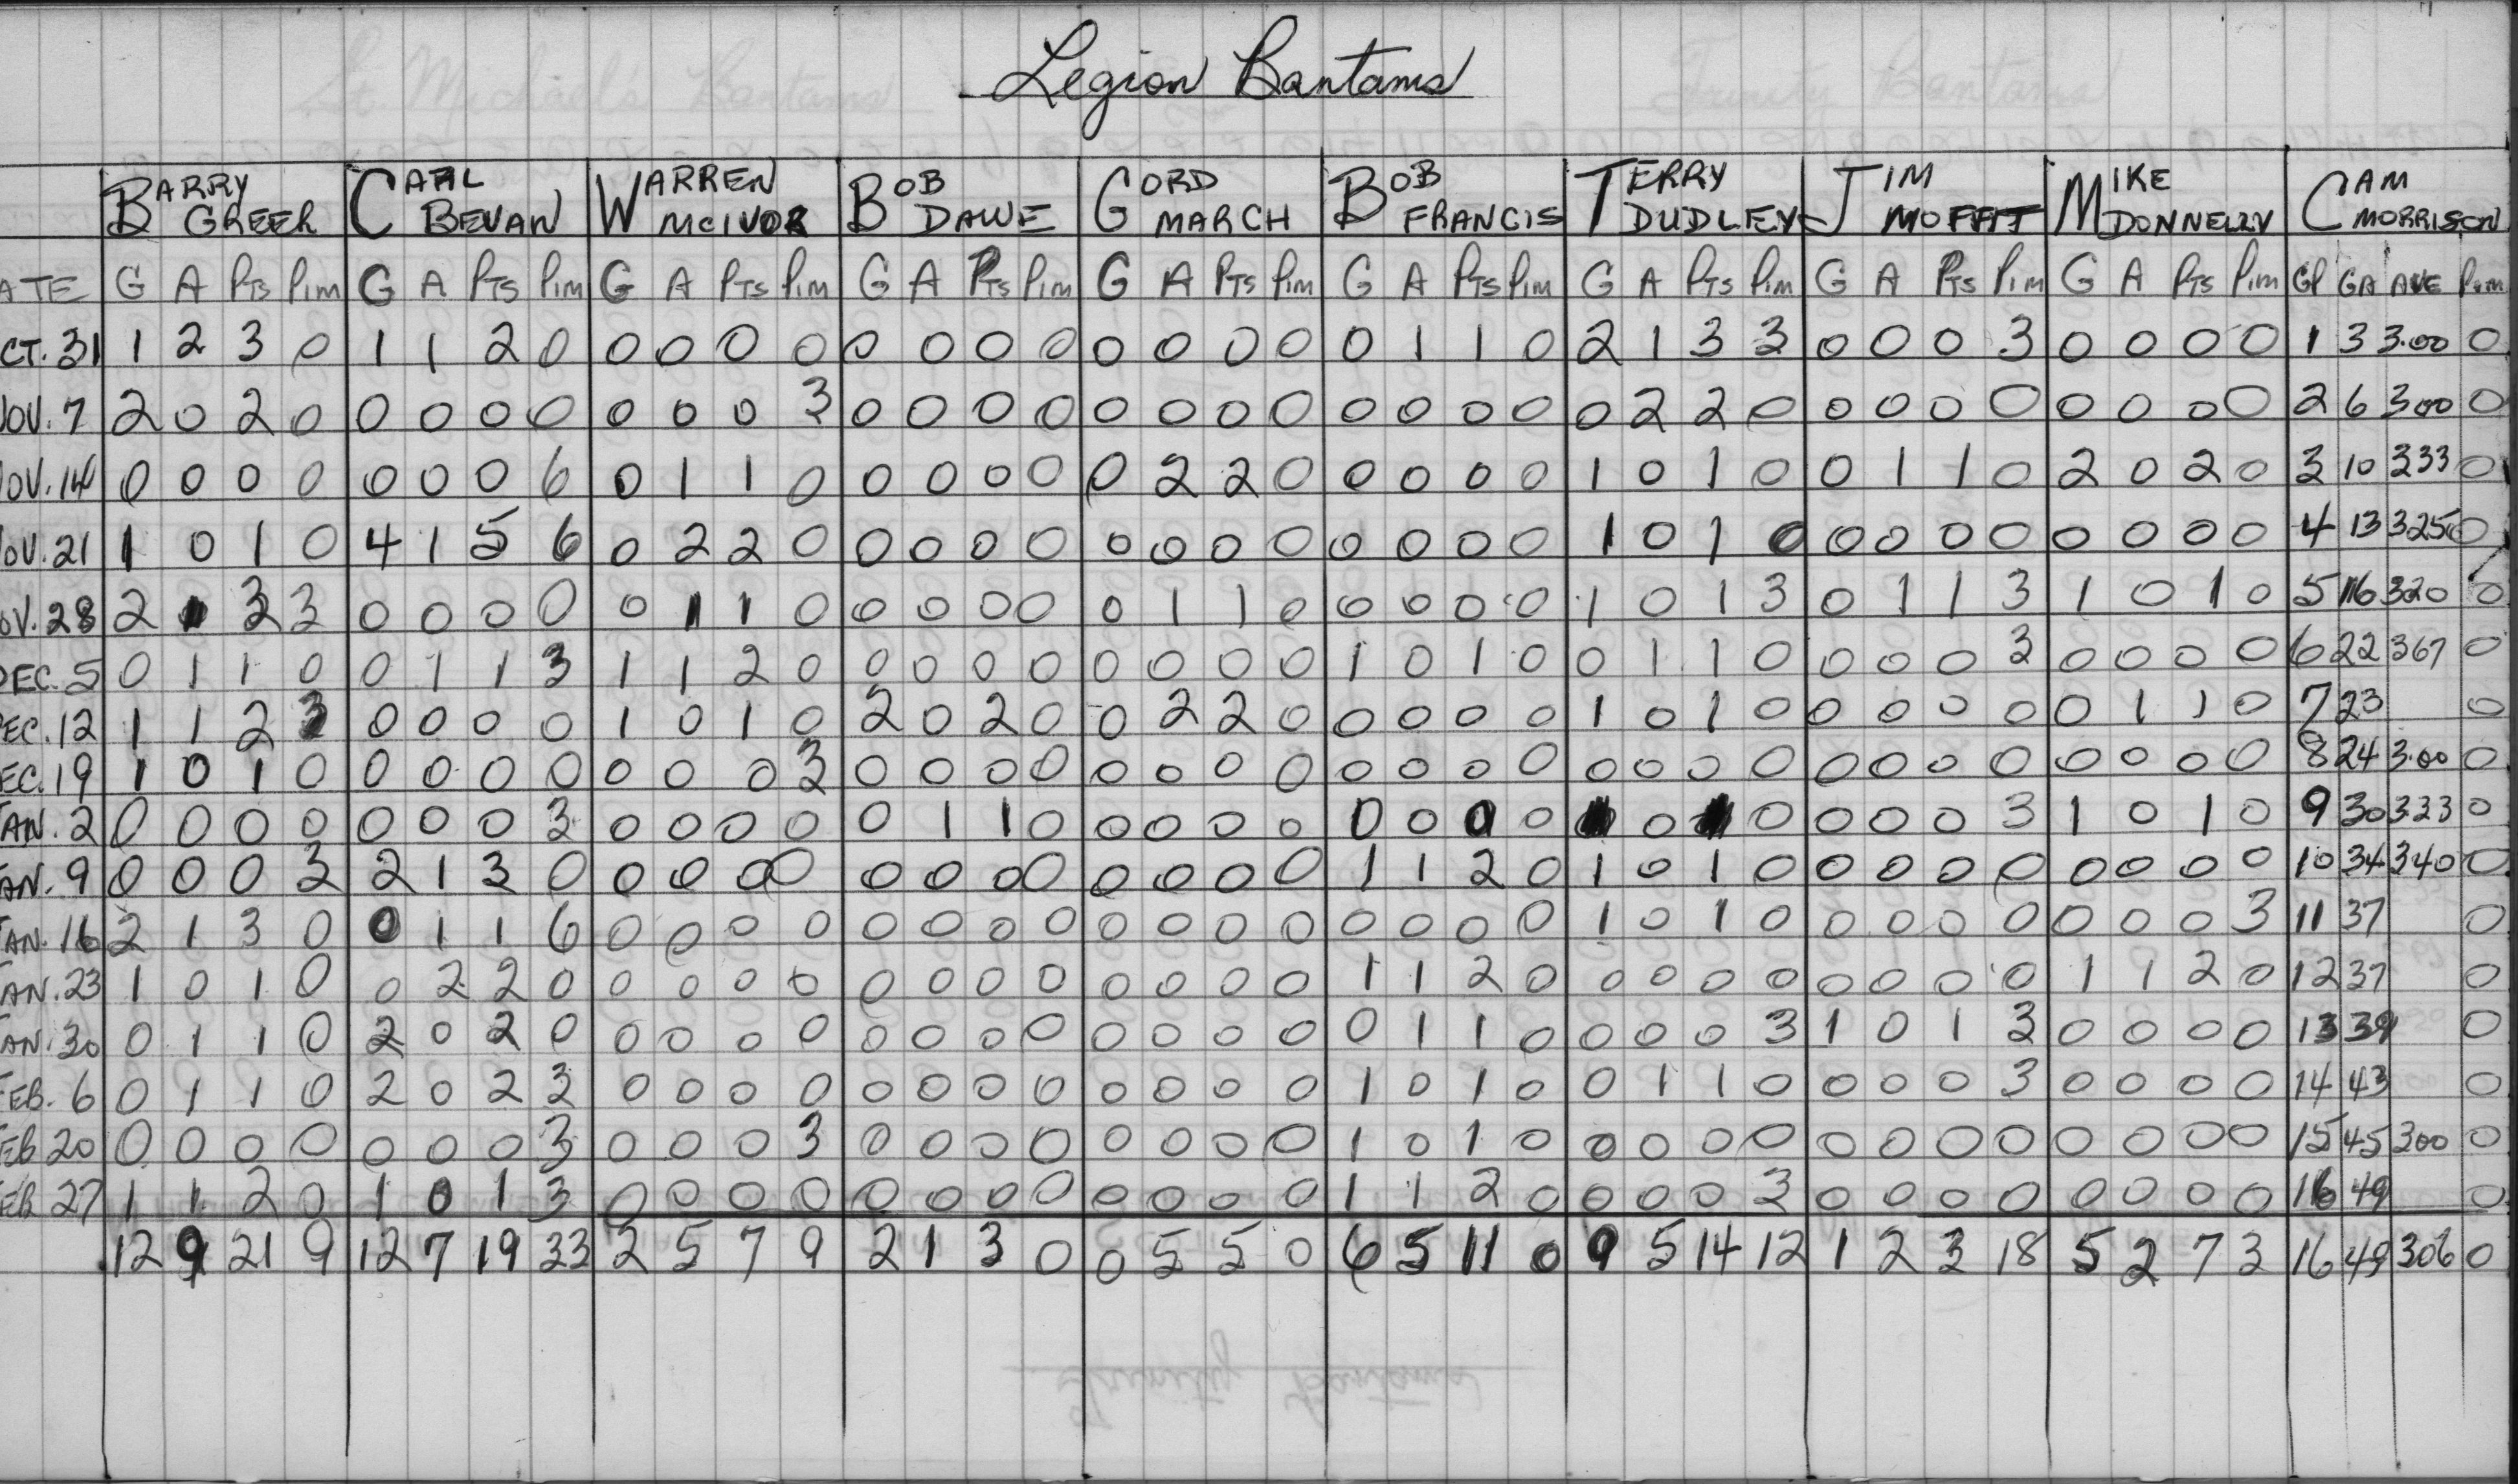 Legion Bantams
BARRY GREER CARL BEVAN WARREN MCIVOR BOB DAWE GORD MARCH BOB FRANCIS TERRY DUDLEY JIM MOFFIT MIKE DONNELLY CAM MORRISON
ATE G A Pts Pim G A Pts Pim G A Pts Pim G A Pts Pim G A Pts Pim G A Pts Pim G A Pts Pim G A Pts Pim G A Pts Pim GP GA AVE Pim
CT. 31 1 2 3 0 1 1 2 0 0 0 0 0 0 0 0 0 0 0 0 0 0 1 1 0 2 1 3 3 0 0 0 3 0 0 0 0 1 3 3.00 0
OV. 7 2 0 2 0 0 0 0 0 0 0 0 3 0 0 0 0 0 0 0 0 0 0 0 0 0 2 2 0 0 0 0 0 0 0 0 0 2 6 300 0
OV. 14 0 0 0 0 0 0 0 6 0 1 1 0 0 0 0 0 0 2 2 0 0 0 0 0 1 0 1 0 0 1 1 0 2 0 2 0 3 10 333 0
OV. 21 1 0 1 0 4 1 5 6 0 2 2 0 0 0 0 0 0 0 0 0 0 0 0 0 1 0 1 0 0 0 0 0 0 0 0 0 4 13 325 0
OV. 28 2 1 3 3 0 0 0 0 0 1 1 0 0 0 0 0 0 1 1 0 0 0 0 0 1 0 1 3 0 1 1 3 1 0 1 0 5 16 320 0
DEC. 5 0 1 1 0 0 1 1 3 1 1 2 0 0 0 0 0 0 0 0 0 1 0 1 0 0 1 1 0 0 0 0 3 0 0 0 0 6 22 367 0
EC. 12 1 1 2 3 0 0 0 0 1 0 1 0 2 0 2 0 0 2 2 0 0 0 0 0 1 0 1 0 0 0 0 0 0 1 1 0 7 23 0
EC. 19 1 0 1 0 0 0 0 0 0 0 0 3 0 0 0 0 0 0 0 0 0 0 0 0 0 0 0 0 0 0 0 0 0 0 0 0 8 24 3.00 0
AN. 2 0 0 0 0 0 0 0 3 0 0 0 0 0 1 1 0 0 0 0 0 0 0 0 0 0 0 0 0 0 3 1 0 1 0 9 30 333 0
AN. 9 0 0 0 3 2 1 3 0 0 0 0 0 0 0 0 0 0 0 0 0 1 1 2 0 1 0 1 0 0 0 0 0 0 0 0 0 10 34 340 0
AN. 16 2 1 3 0 0 1 1 6 0 0 0 0 0 0 0 0 0 0 0 0 0 0 0 0 1 0 1 0 0 0 0 0 0 0 0 3 11 37 0
AN. 23 1 0 1 0 0 2 2 0 0 0 0 0 0 0 0 0 0 0 0 0 1 1 2 0 0 0 0 0 0 0 0 0 1 1 2 0 12 37 0
AN. 30 0 1 1 0 2 0 2 0 0 0 0 0 0 0 0 0 0 0 0 0 0 1 1 0 0 0 0 3 1 0 1 3 0 0 0 0 13 39 0
FEB. 6 0 1 1 0 2 0 2 3 0 0 0 0 0 0 0 0 0 0 0 0 1 0 1 0 0 1 1 0 0 0 0 3 0 0 0 0 14 43 0
EB 20 0 0 0 0 0 0 0 3 0 0 0 3 0 0 0 0 0 0 0 0 1 0 1 0 0 0 0 0 0 0 0 0 0 0 0 0 15 45 300 0
EB 27 1 1 2 0 1 0 1 3 0 0 0 0 0 0 0 0 0 0 0 0 1 1 2 0 0 0 0 3 0 0 0 0 0 0 0 0 16 49 0
12 9 21 9 12 7 19 33 2 5 7 9 2 1 3 0 0 5 5 0 6 5 11 0 9 5 14 12 1 2 3 18 5 2 7 3 16 49 306 0